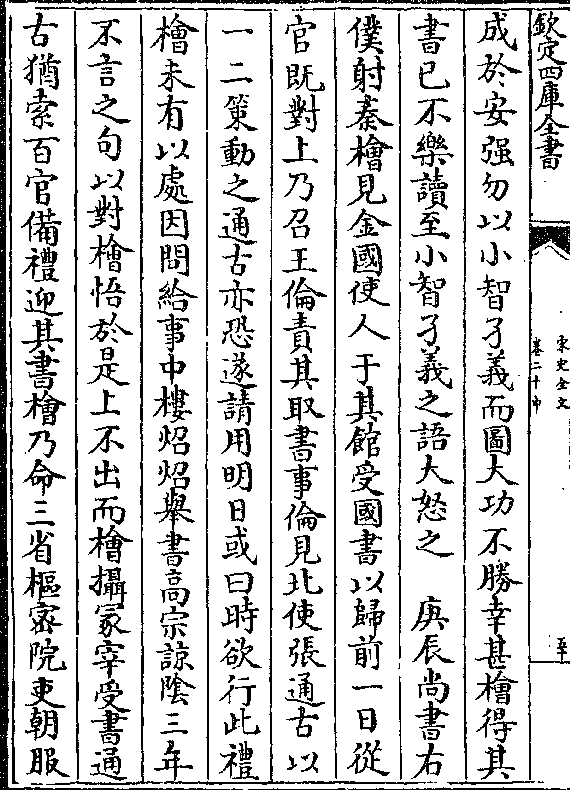 欽定四庫全書
宋史全文
卷二十中
至
成於安强勿以小智孑義而圖大功不勝幸甚檜得其
書已不樂讀至小智孑義之語大怒之　庚辰尚書右
僕射秦檜見金國使人于其館受國書以歸前一日從
官既對上乃召王倫責其取書事倫見北使張通古以
一二策動之通古亦恐遂請用明日或曰時欲行此禮
檜未有以處因問給事中樓炤炤舉書高宗諒陰三年
不言之句以對檜悟於是上不出而檜攝冢宰受書通
古猶索百官備禮迎其書檜乃命三省樞密院吏朝服